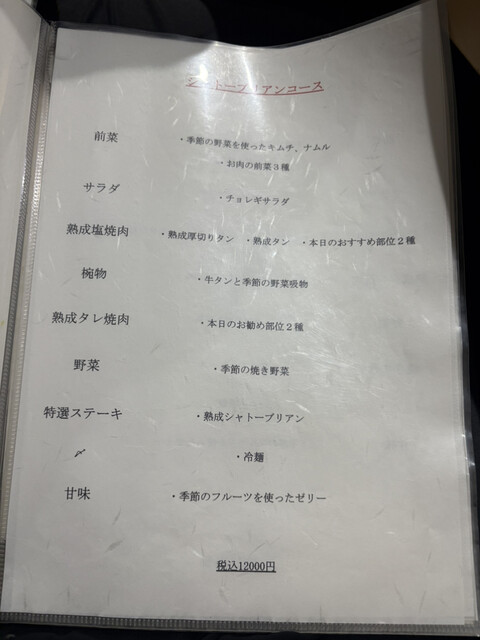 シャトーブリアンコース
前菜 ・季節の野菜を使ったキムチ、ナムル
・お肉の前菜３種
サラダ ・チョレギサラダ
熟成塩焼肉 ・熟成厚切りタン ・熟成タン ・本日のおすすめ部位２種
椀物 ・牛タンと季節の野菜吸物
熟成タレ焼肉 ・本日のお勧め部位２種
野菜 ・季節の焼き野菜
特選ステーキ ・熟成シャトーブリアン
〆 ・冷麺
甘味 ・季節のフルーツを使ったゼリー
税込12000円